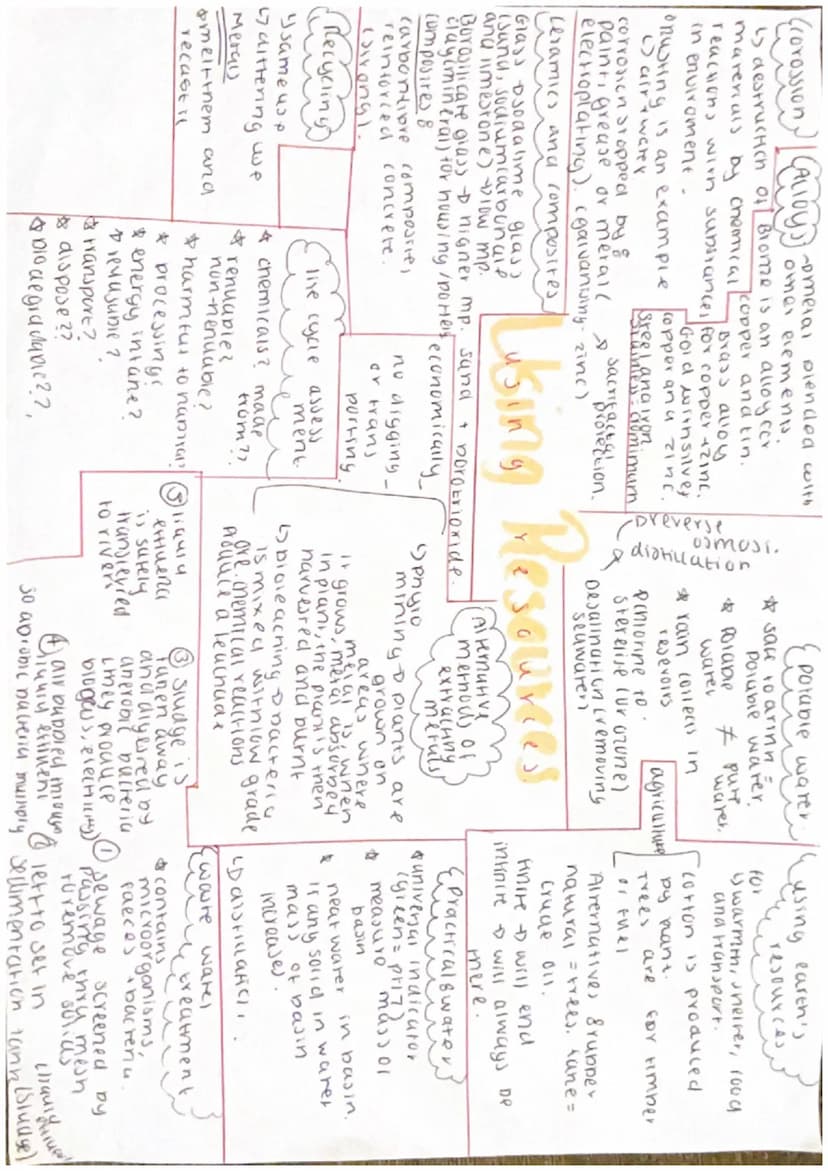 Using Resources
Corossion
↳ destruction of
materials by chemical
reactions with substances
in enviroment.
↳ rusting is an example
↳ air + water
corrosion stopped by:
paint, grease or metal (
electroplating). (galvanising zinc)
→ sacrificial
protection.
Alloys
→ metal blended with
other elements.
Bronze is an alloy of
copper and tin.
Brass alloy
for copper + zinc.
Gold with silver
copper and zinc.
Steel and iron
aluminium
potable water.
* safe to drink =
potable water.
* potable ≠ pure
water water.
* rain collects in
resevoirs
* chlorine to
sterelise (or ozone)
Desalination (removing
seawater)
→ reverse
osmosi.
→ distillation
using earth's
resources
for
↳ warmth, shelter, food
and transport.
agriculture
cotton is produced
by plant.
trees are for timber
or fuel
Alternatives: rubber
natural = trees. fake =
crude oil.
finite → will end
infinite → will always be
there.
Ceramics and composites
Glass → sodalime glass
(sand, sodium carbonate
and limestone) → low mp.
Borosilicate glass → higher mp. sand + borotrioxide.
clay (mineral) for housing / pottery
composites:
carbon fibre composites,
reinforced concrete.
(strong).
Recycling
↳ same use
↳ differing use
Metals
* melt them and
recast it
life cycle assess
ment.
* chemicals? made
from??
* renuable?
non-renuable?
* harmful to human?
* processing?
* energy intake?
* reausable?
* transport?
* dispose??
* biodegradable??,
Alternative
methods of
extracting
metals
economically
no digging
or trans
porting
↳ phyto
mining → plants are
grown on
areas where
metal is when
it grows, metal absorbed
in plant, the plant is then
harvested and burnt
↳ bioleaching → bacteria
is mixed with low grade
ore. chemical reactions
produce a leachate
Practical: water
* universal indicator
(green = pH 7)
* measure mass of
basin
* heat water in basin.
is any solid in water
mass of basin
increases.
↳ Distillation.
waste water
treatment
* contains
microorganisms,
faeces + bacteria.
① sewage screened by
passing thru mesh
to remove solids
② left to set in
sedimentation tank (sludge)
liquid effluent
③ sludge is
taken away
and digested by
anerobic bacteria
they produce
biogas, electricity)
④ air pumped through
liquid effluent
so aerobic bacteria multiply
⑤ liquid
effluent
is safely
transferred
to rivers